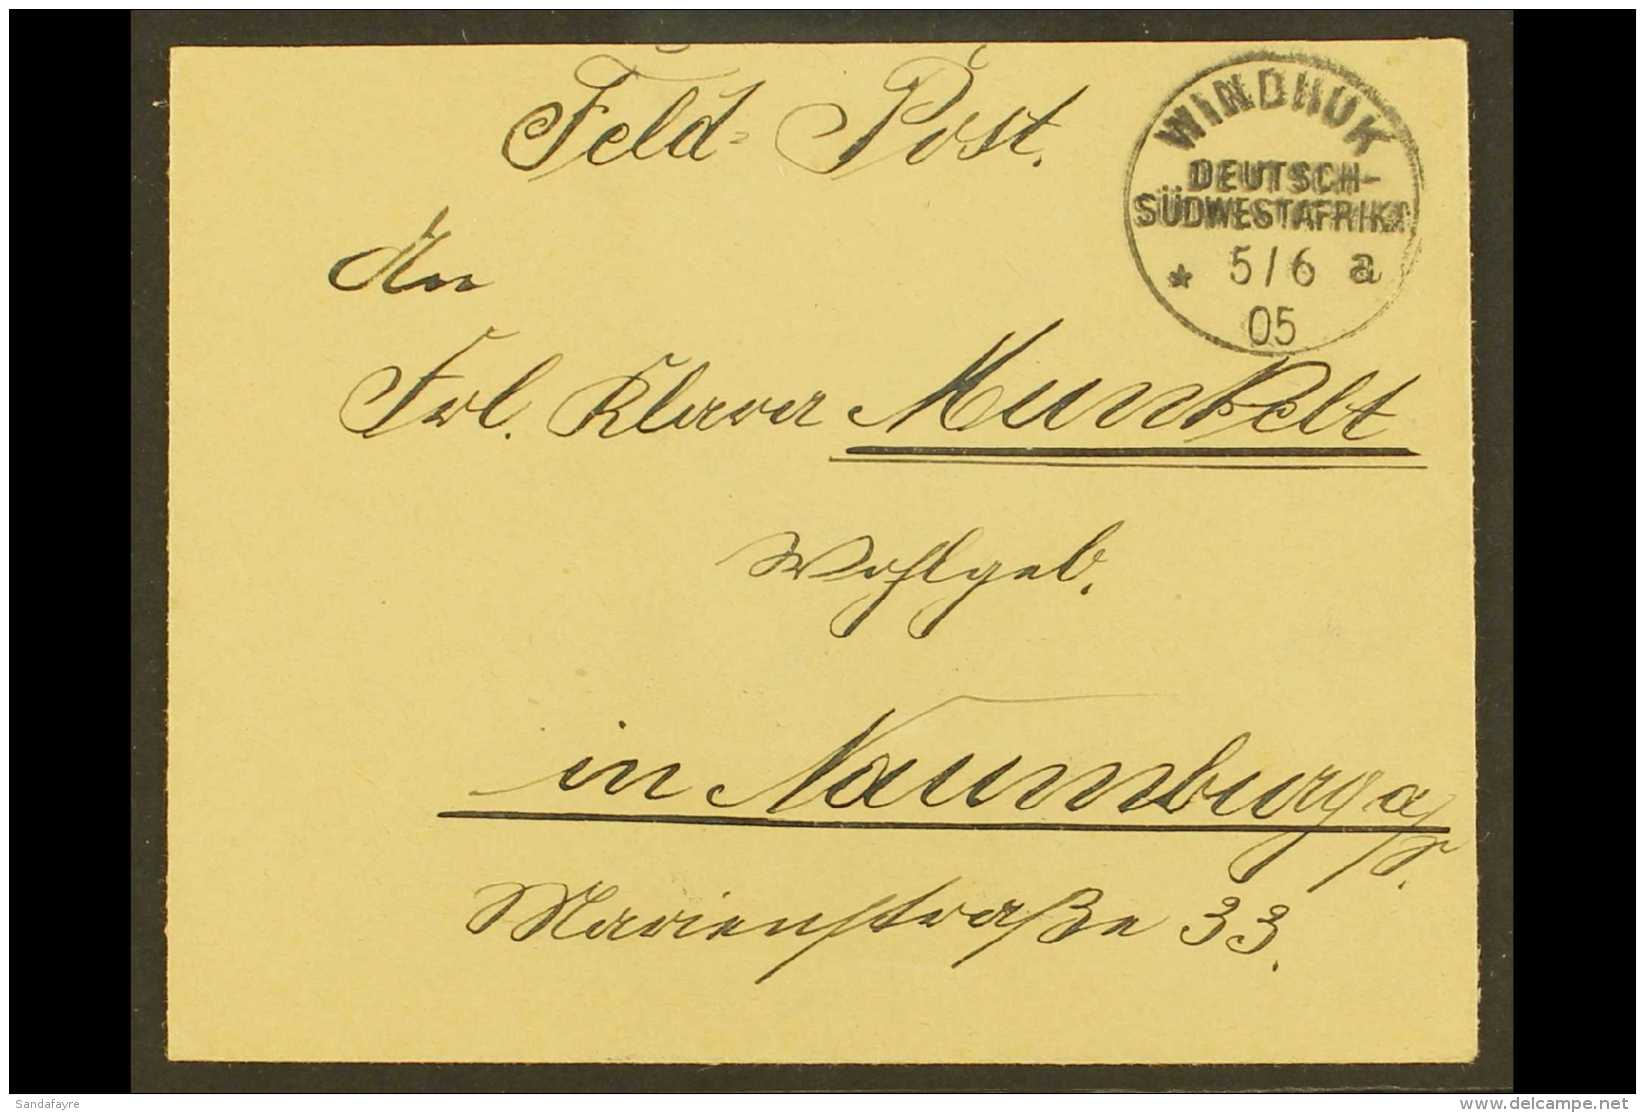 Feld-Post.
WINDHUK
DEUTSCH-
SÜDWESTAFRIKA
* 5/6 a
05
An
Frl. Klara Munkelt
Wohlgeb.
in Naumburg a/S.
Marienstraße 33.
Sandafayre
delcampe.net